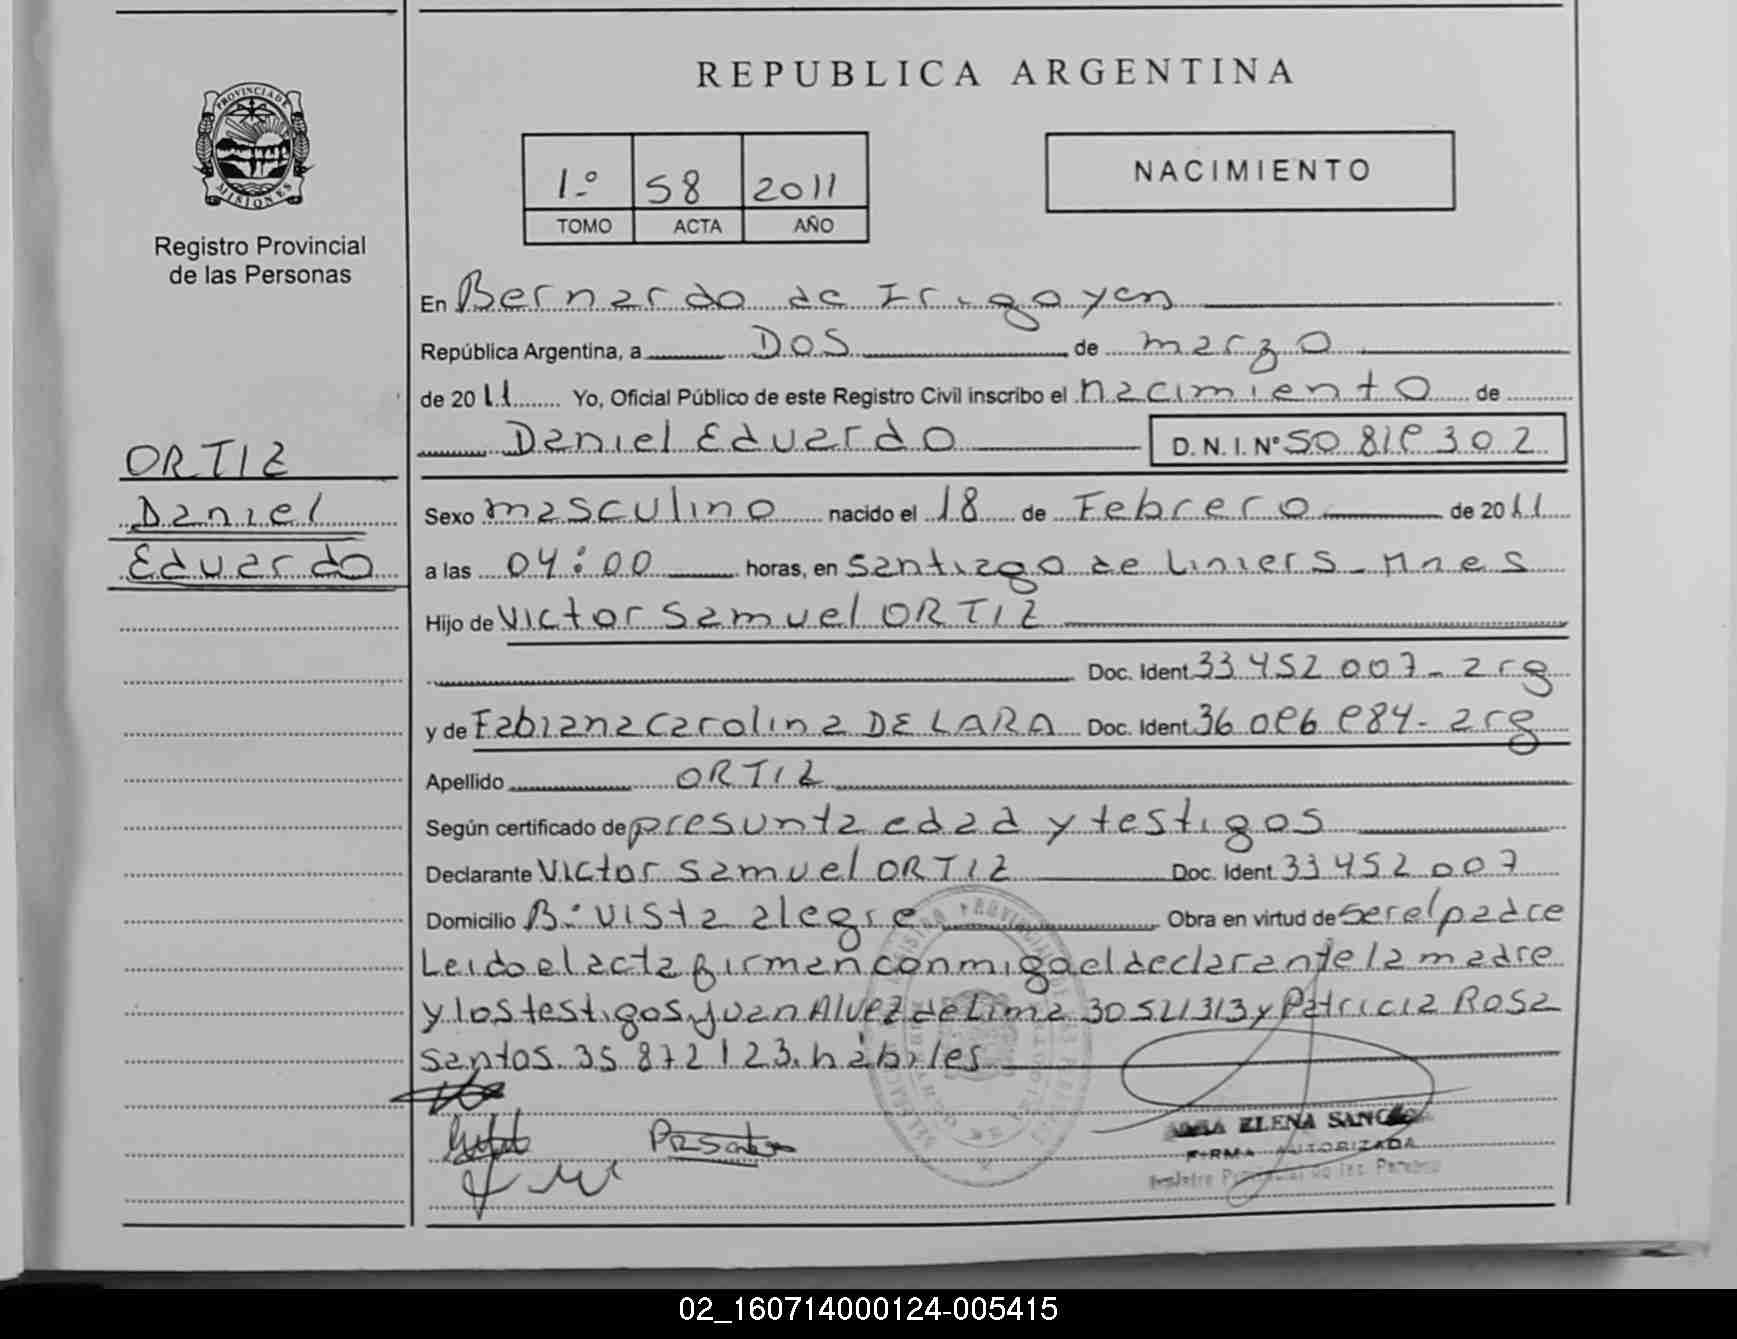 REPUBLICA ARGENTINA
PROVINCIA DE MISIONES
Registro Provincial
de las Personas
1º 58 2011
TOMO ACTA AÑO
NACIMIENTO
En Bernardo de Irigoyen
República Argentina, a DOS de marzo
de 2011 Yo, Oficial Público de este Registro Civil inscribo el nacimiento de
Daniel Eduardo D. N. I. Nº 50.819.302
ORTIZ
Daniel
Eduardo
Sexo masculino nacido el 18 de Febrero de 2011
a las 04:00 horas, en Santiago de Liniers - Mnes
Hijo de Victor Samuel ORTIZ
Doc. Ident. 33.452.007 - arg
y de Fabiana Carolina DE LARA Doc. Ident. 36.096.984 - arg
Apellido ORTIZ
Según certificado de presunta edad y testigos
Declarante Victor Samuel ORTIZ Doc. Ident. 33.452.007
Domicilio B: vista alegre Obra en virtud de ser el padre
Leido el acta firman conmigo el declarante la madre
y los testigos Juan Alvez de Lima 30521313 y Patricia Rosa
Santos. 35.872.123. hábiles
ELENA
FIRMA AUTORIZADA
Registro Provincial de las Personas
02_160714000124-005415